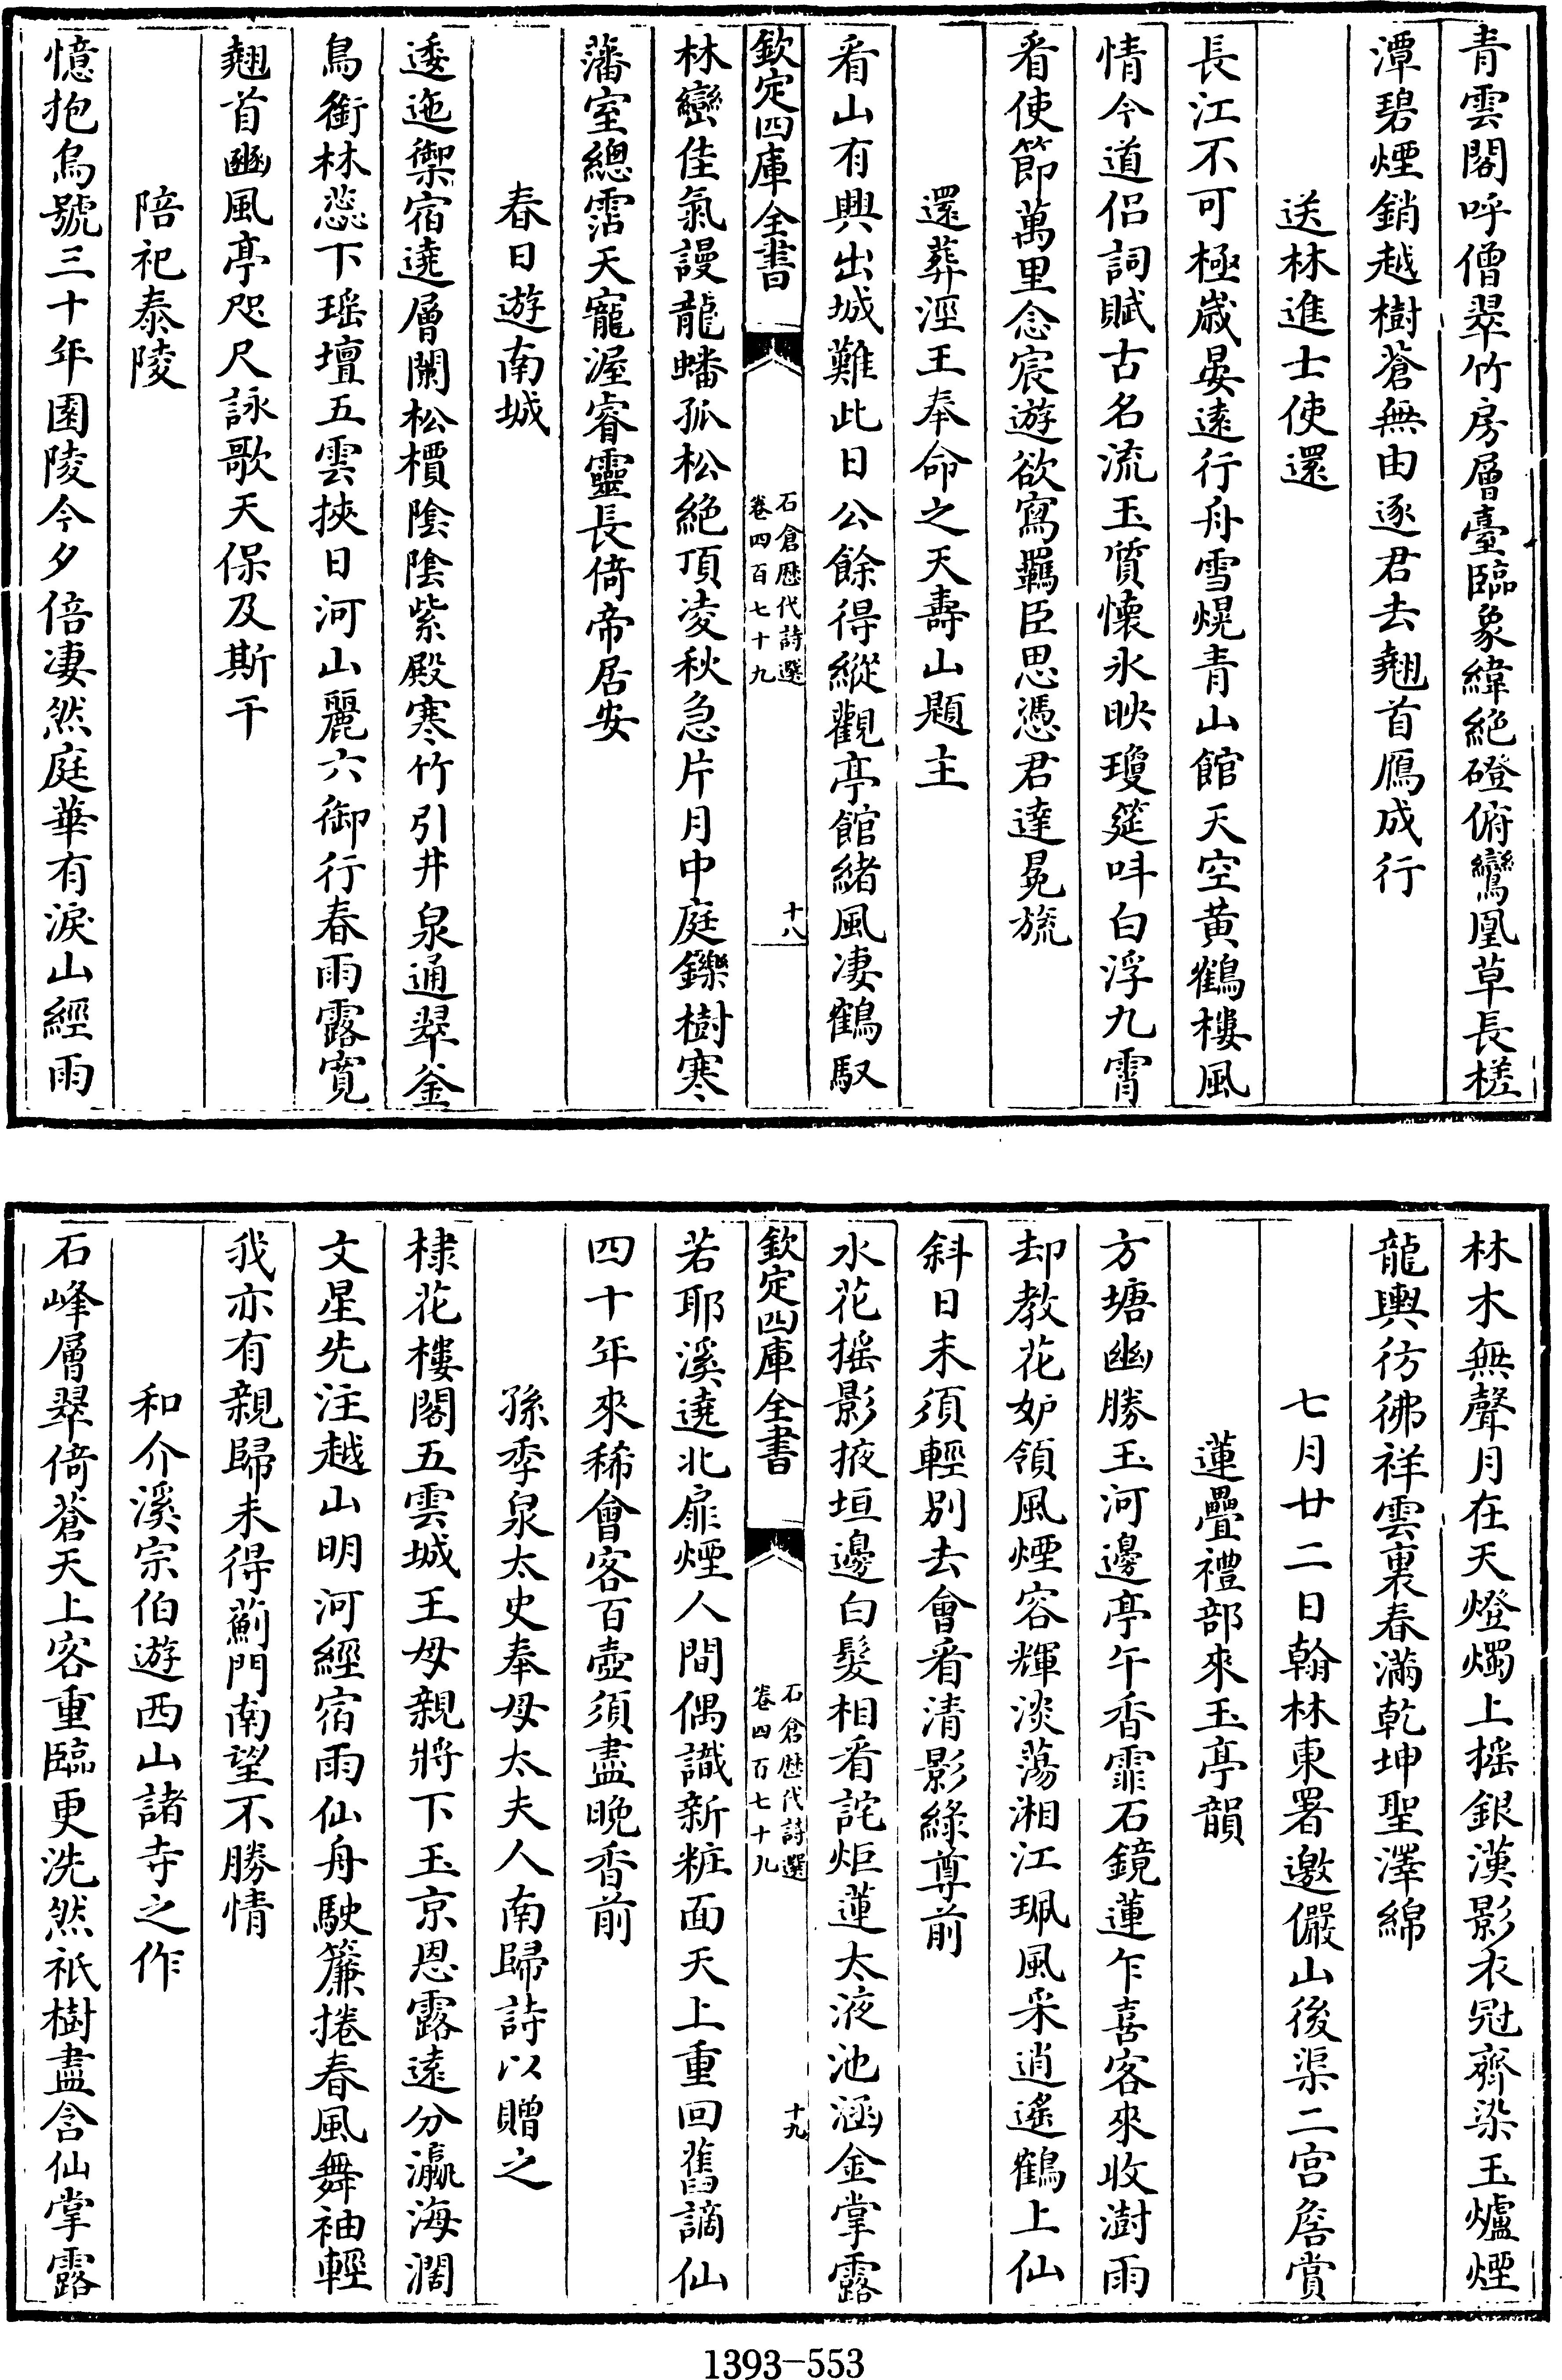 青雲閣呼僧翠竹房層臺臨象緯絶磴俯鸞凰草長槎
潭碧煙銷越樹蒼無由逐君去翹首鴈成行
送林進士使還
長江不可極歳晏遠行舟雪幌青山館天空黄鶴樓風
情今道侣詞賦古名流玉質懐氷映瓊筵呌白浮九霄
看使節萬里念宸遊欲寫羈臣思憑君達冕旒
還葬涇王奉命之天壽山題主
看山有興出城難此日公餘得縱觀亭館緒風凄鶴馭
欽定四庫全書
石倉歴代詩選
卷四百七十九
十八
林巒佳氣謾龍蟠孤松絶頂凌秋急片月中庭鑠樹寒
藩室總霑天寵渥睿靈長倚帝居安
春日遊南城
逶迤禦宿遶層闌松檟陰陰紫殿寒竹引井泉通翠釜
鳥銜林蕊下瑶壇五雲挾日河山麗六御行春雨露寛
翹首豳風亭咫尺詠歌天保及斯干
陪祀泰陵
憶抱烏號三十年園陵今夕倍凄然庭華有淚山經雨
林木無聲月在天燈燭上摇銀漢影衣冠齊染玉爐煙
龍輿彷彿祥雲裏春滿乾坤聖澤綿
七月廿二日翰林東署邀儼山後渠二宫詹賞
蓮疊禮部來玉亭韻
方塘幽勝玉河邊亭午香霏石鏡蓮乍喜客來收澍雨
却教花妒領風煙容輝淡蕩湘江珮風采逍遙鶴上仙
斜日未須輕别去會看清影緑尊前
水花摇影掖垣邊白髮相看詫炬蓮太液池涵金掌露
欽定四庫全書
石倉歴代詩選
卷四百七十九
十九
若耶溪遶北扉煙人間偶識新粧面天上重回舊謫仙
四十年來稀會客百壺須盡晚香前
孫季泉太史奉母太夫人南歸詩以贈之
棣花樓閣五雲城王母親將下玉京恩露遠分瀛海濶
文星先注越山明河經宿雨仙舟駛簾捲春風舞袖輕
我亦有親歸未得薊門南望不勝情
和介溪宗伯遊西山諸寺之作
石峰層翠倚蒼天上客重臨更洗然祇樹盡含仙掌露
1393-553